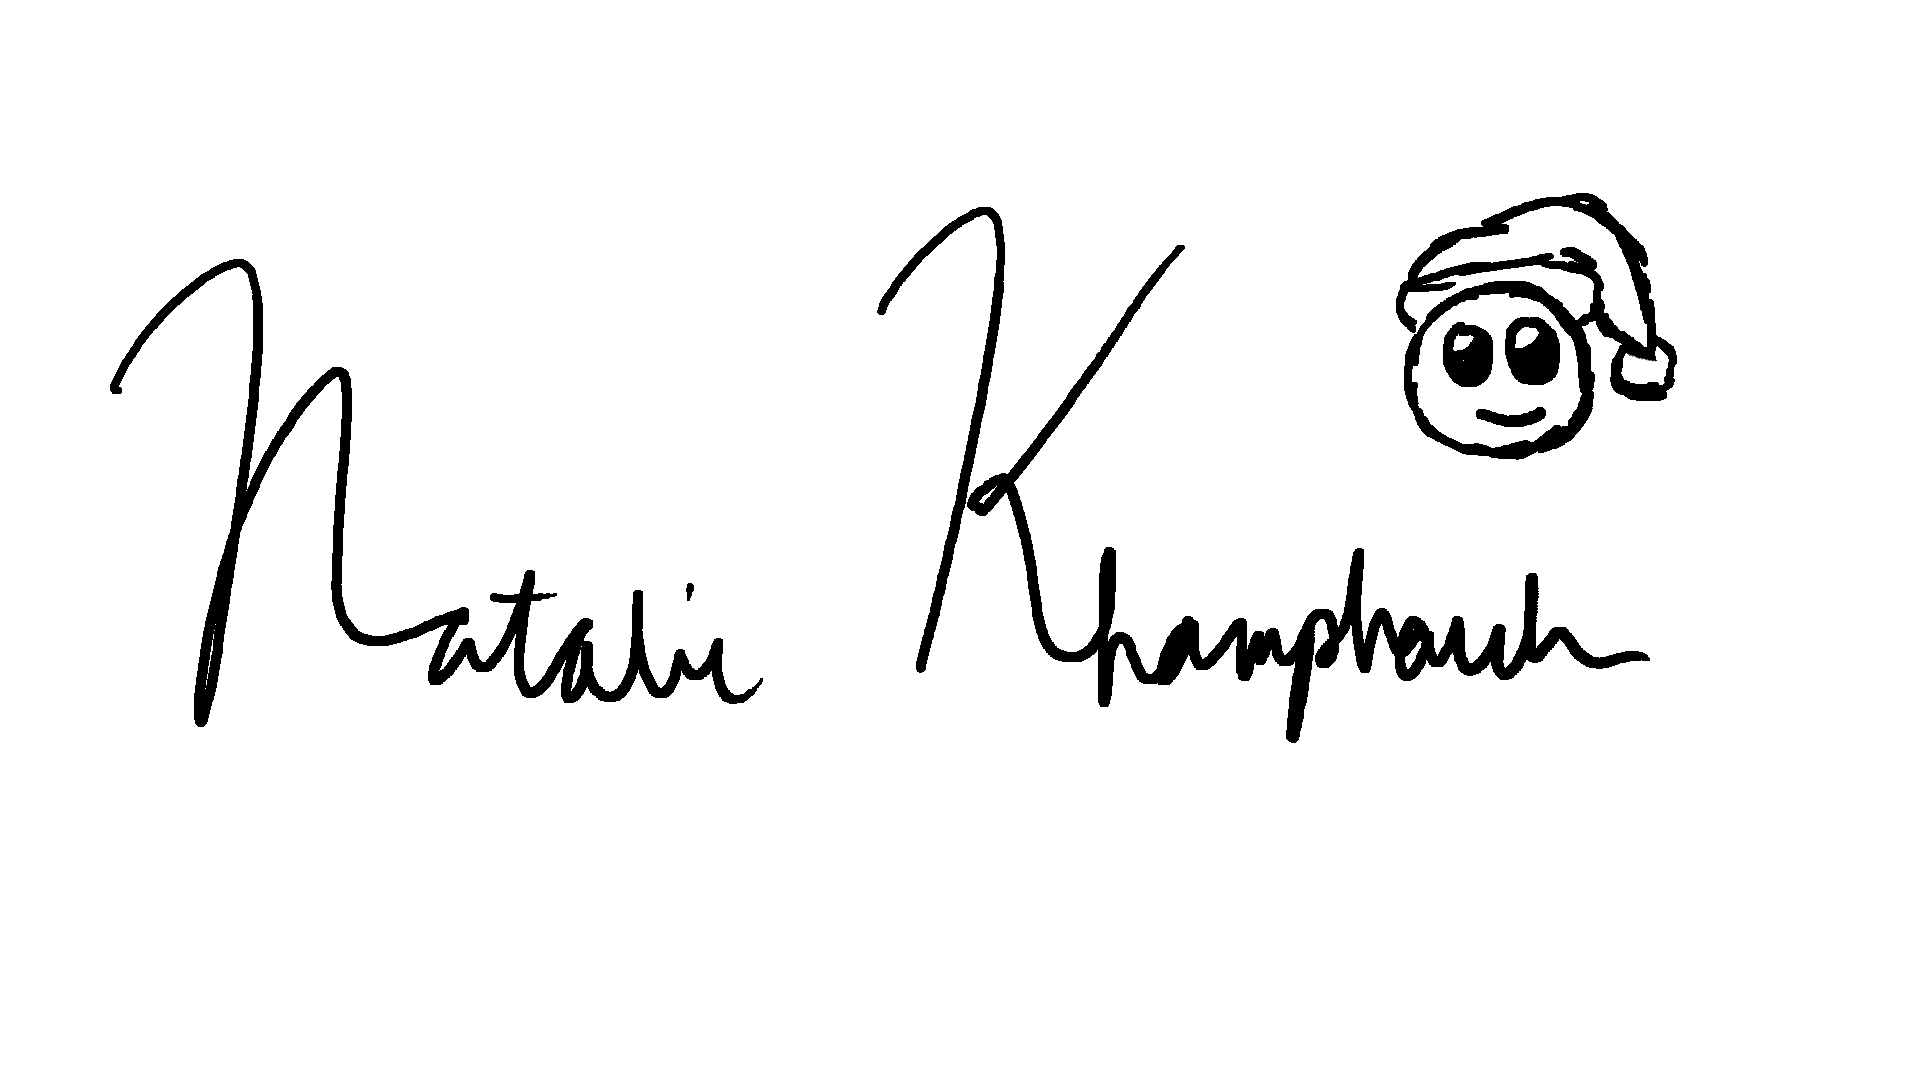 Natalie Khamphouch